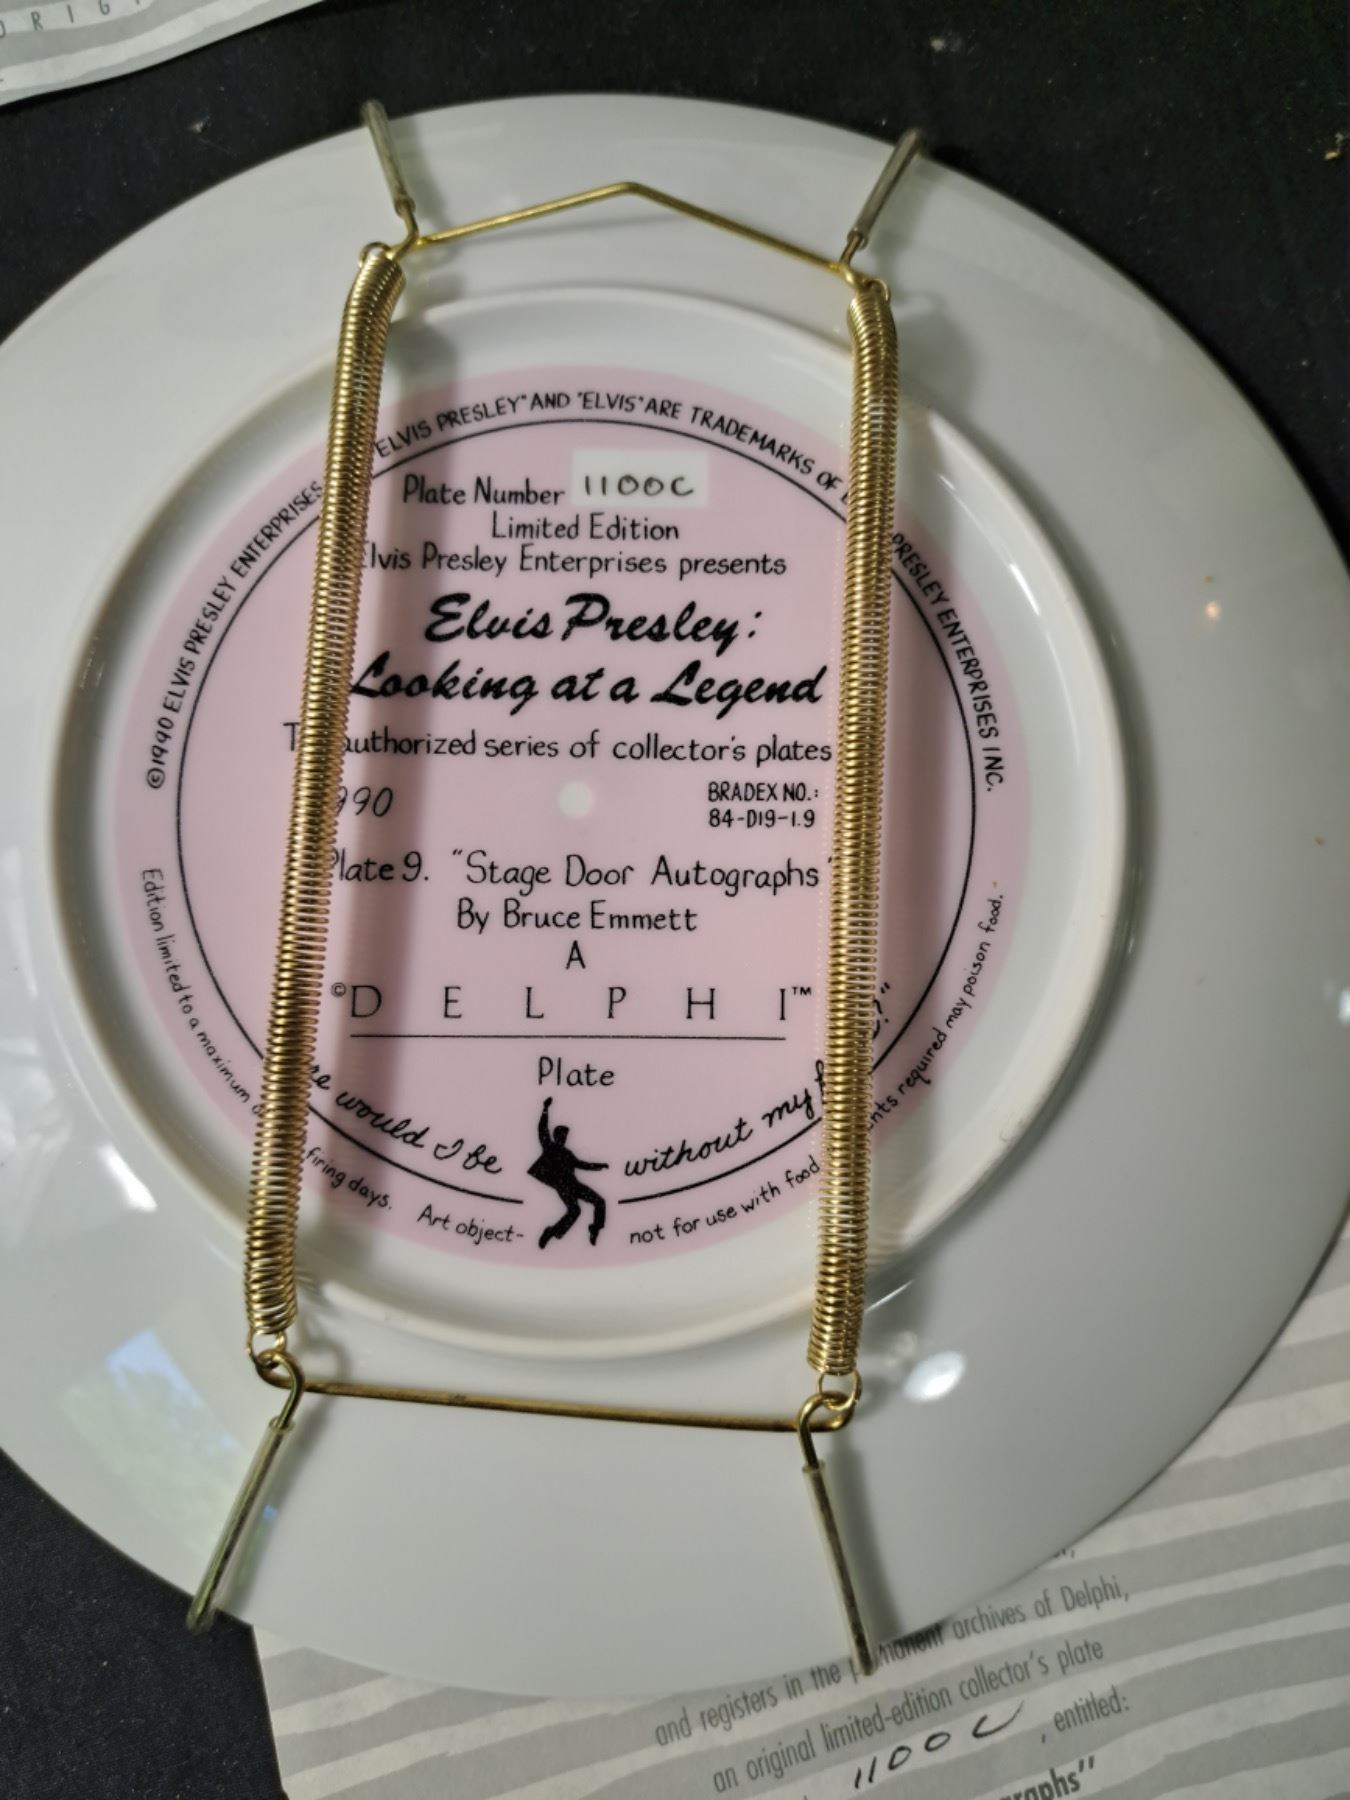 ORIG
©1990 ELVIS PRESLEY ENTERPRISES
"ELVIS PRESLEY" AND "ELVIS" ARE TRADEMARKS OF
PRESLEY ENTERPRISES INC.
Plate Number 1100C
Limited Edition
Elvis Presley Enterprises presents
Elvis Presley:
Looking at a Legend
authorized series of collector's plates
990
BRADEX NO.:
84-D19-1.9
Plate 9. "Stage Door Autographs"
By Bruce Emmett
A
©DELPHI™
Plate
would I be without my
Edition limited to a maximum
firing days. Art object-
not for use with food.
required may poison food.
permanent archives of Delphi,
and registers in the
an original limited-edition collector's plate
1100C, entitled:
graphs"